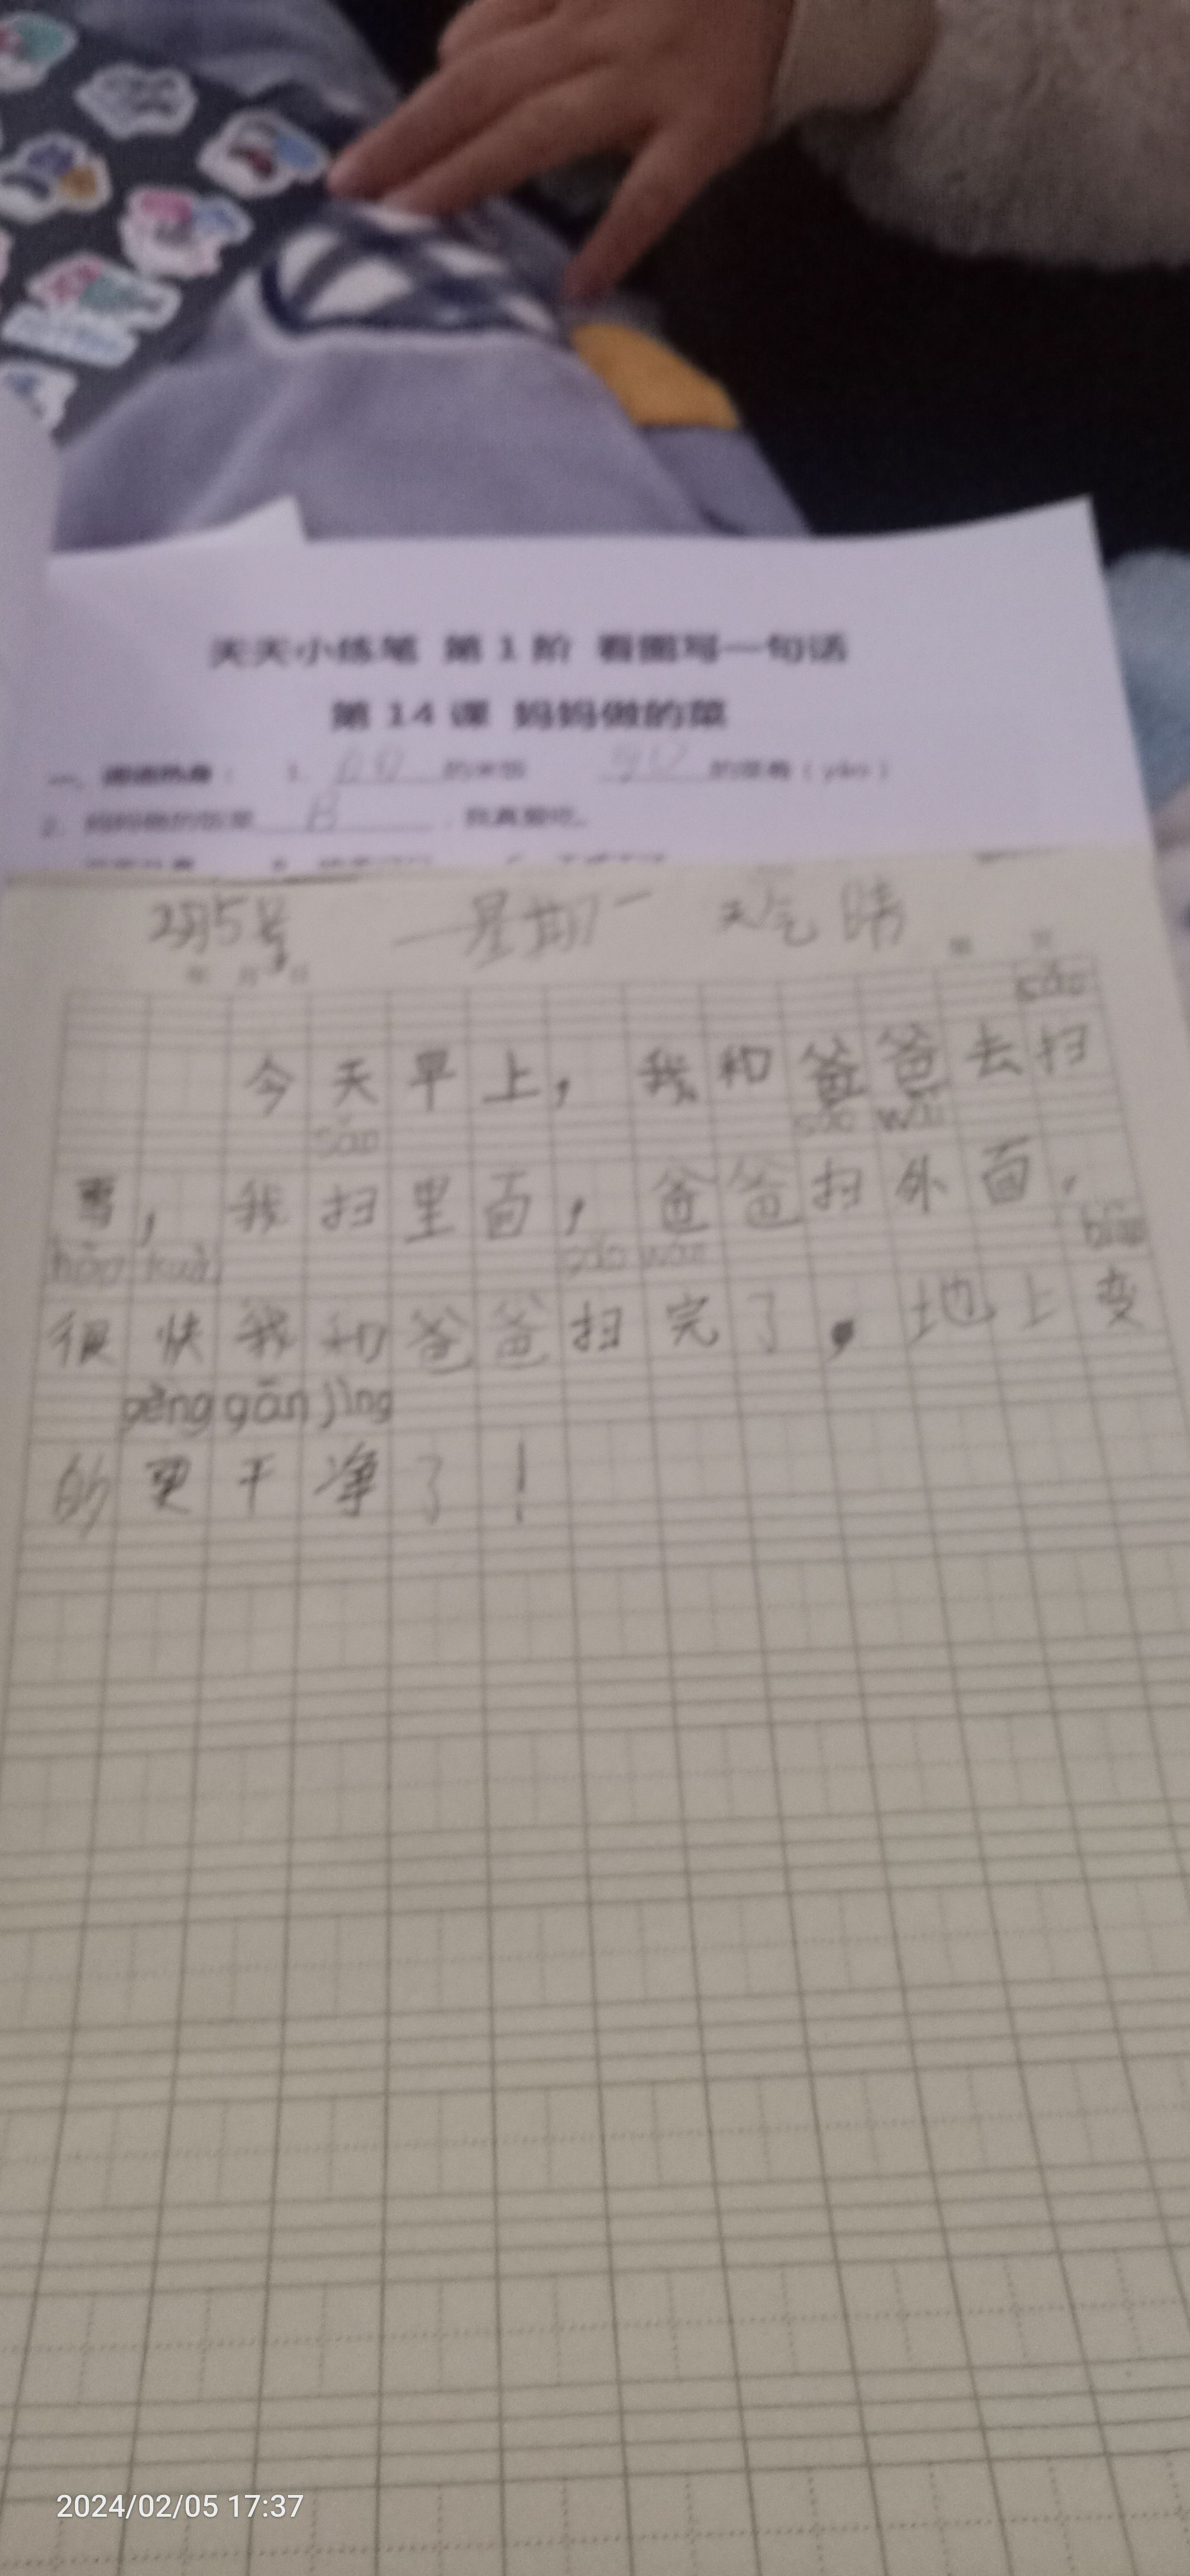 天天小练笔 第 1 阶 看图写一句话
第 14 课 妈妈做的菜
一、 1. 的米饭 的 (yáo)
2. 妈妈做的饭菜 B ，我真爱吃。
2月5号 星期一 天气 晴
年 月 日 第 页
sǎo
今天早上，我和爸爸去扫
sǎo sǎo wài
雪，我扫里面，爸爸扫外面，
hěn kuài sǎo wán biàn
很快我和爸爸扫完了，地上变
gèng gān jìng
的更干净了！
2024/02/05 17:37